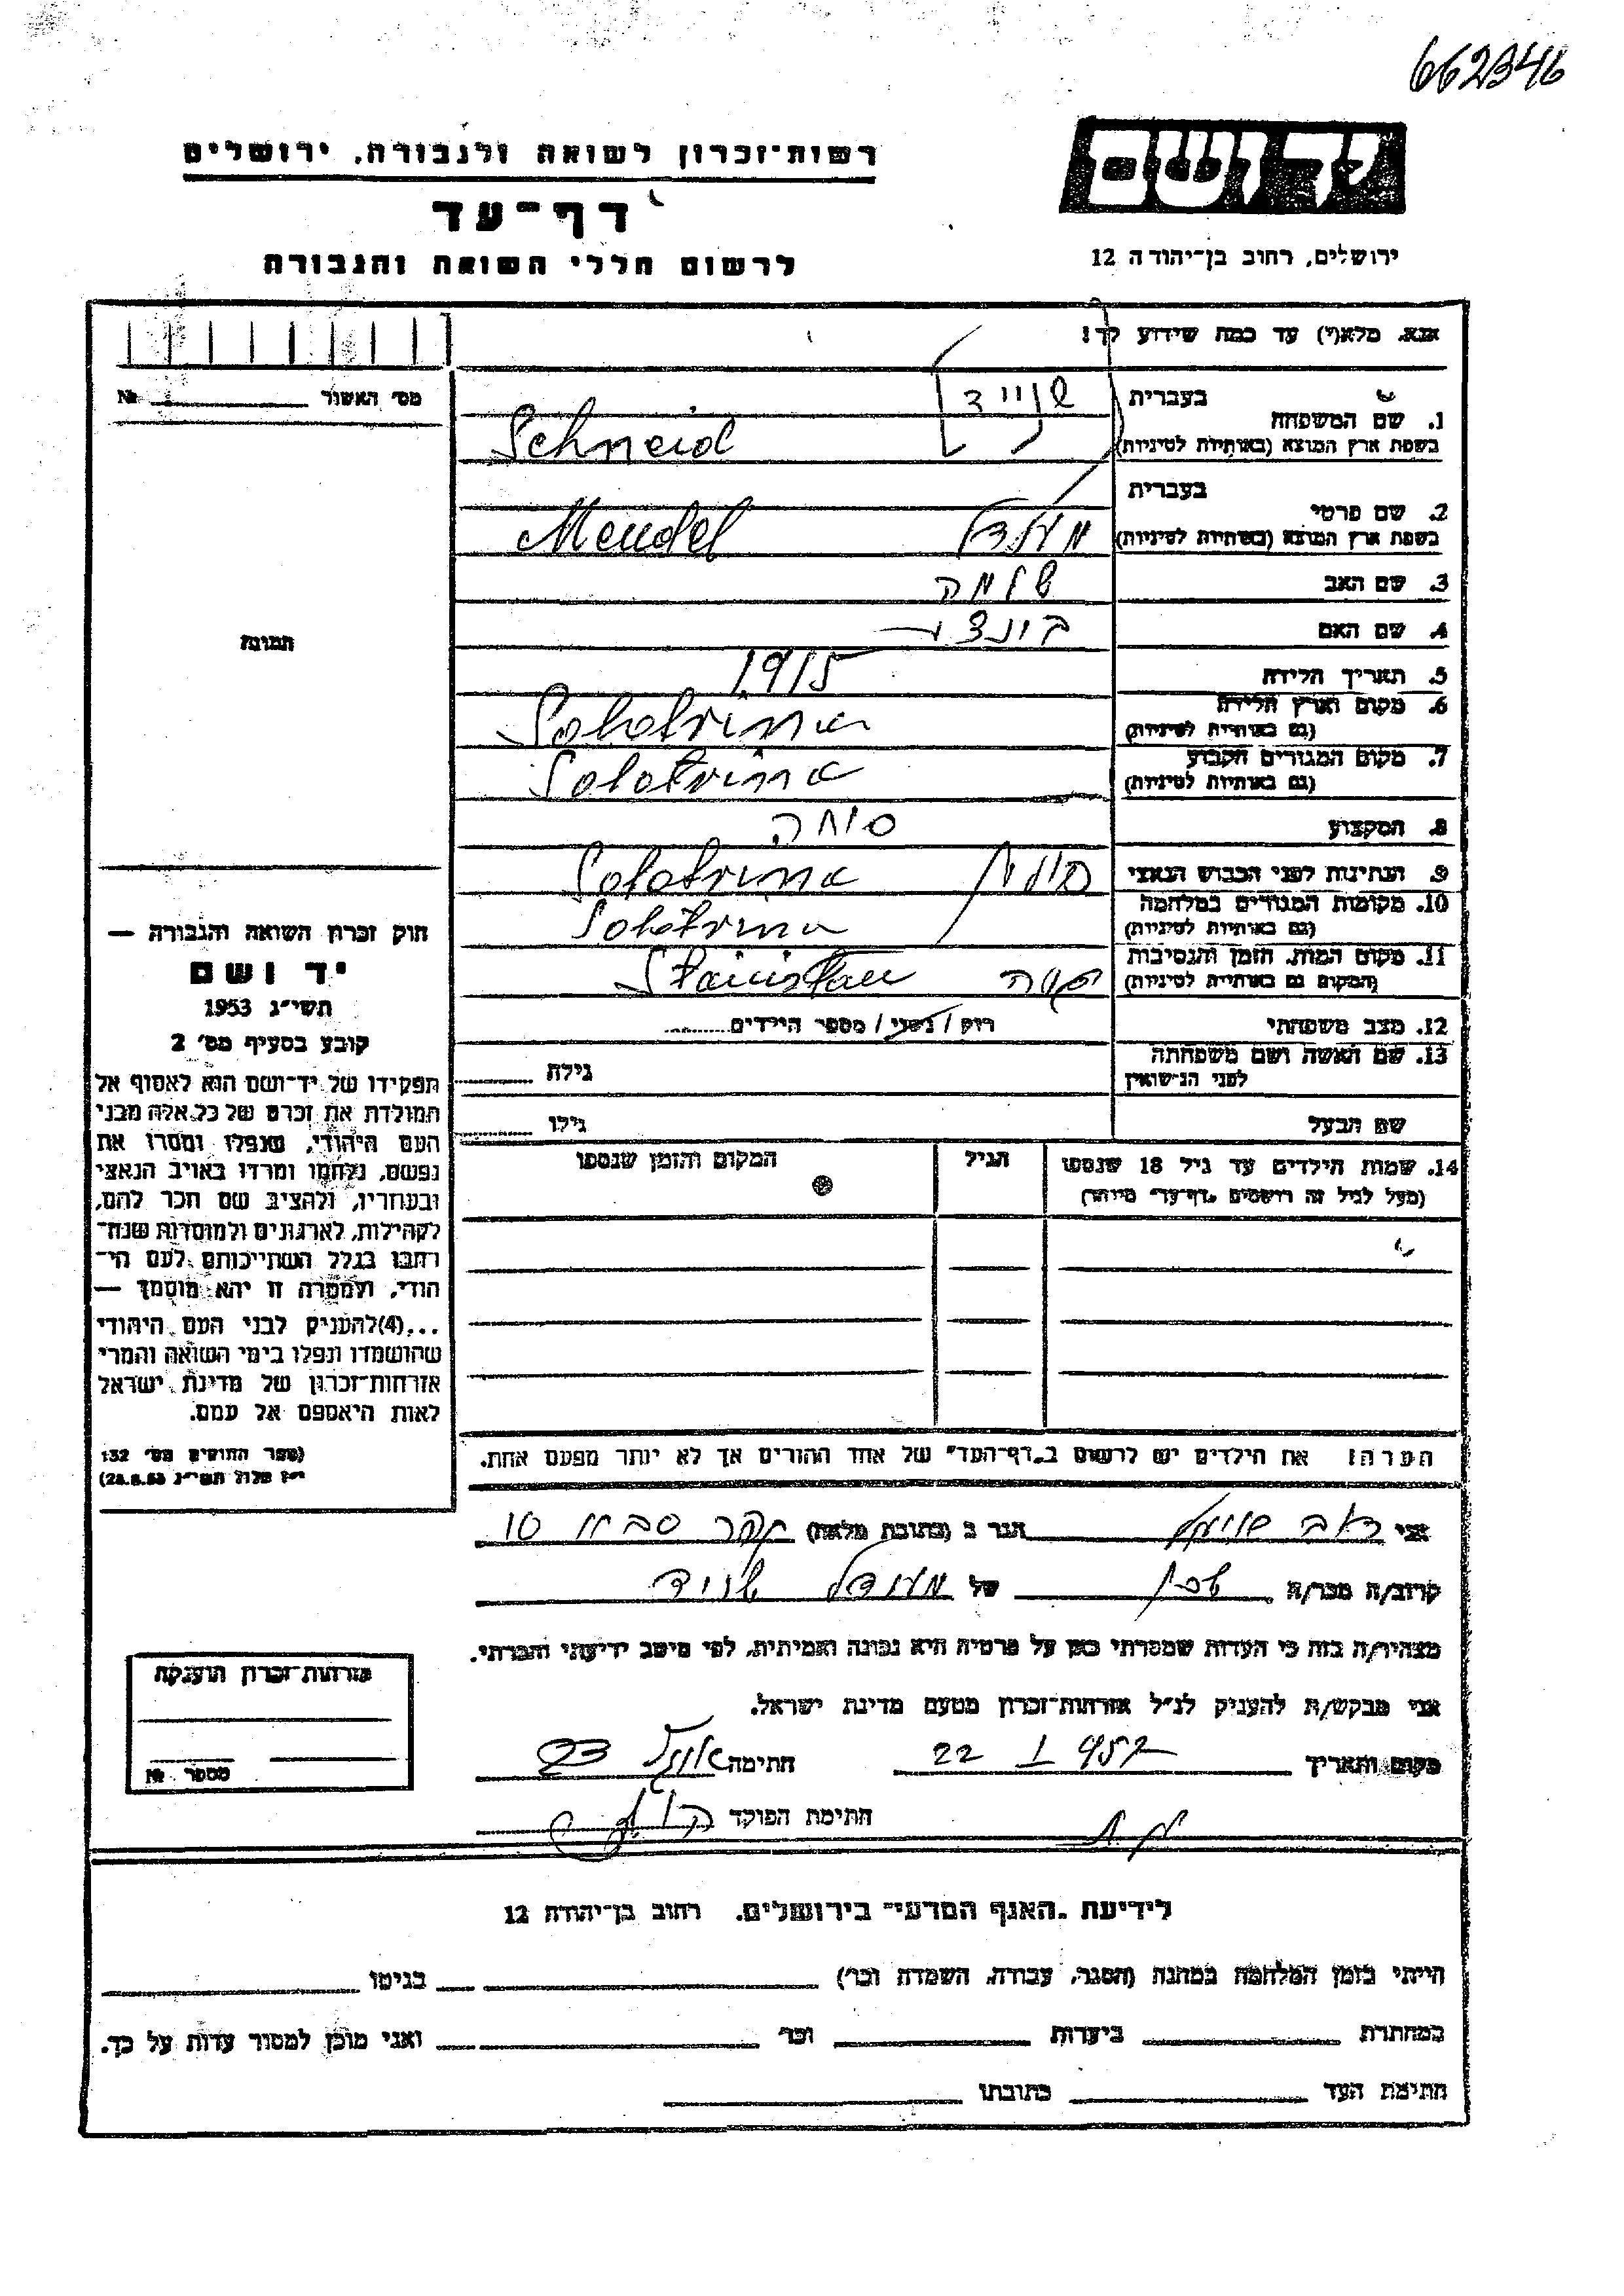 662346
רשות־זכרון לשואה ולגבורה, ירושלים
יד ושם
דף־עד
לרשום חללי השואה והגבורה
ירושלים, רחוב בן־יהודה 12
אנא, מלא(י) עד כמה שידוע לך!
מס׳ האשור № 
1. שם המשפחה בעברית שנייד
בשפת ארץ המוצא (באותיות לטיניות) Schneid
2. שם פרטי בעברית
בשפת ארץ המוצא (באותיות לטיניות) מענדל Mendel
3. שם האב שלמה
4. שם האם
תמונה
5. תאריך הלידה 1915
6. מקום וארץ הלידה (גם באותיות לטיניות) Solotvina
7. מקום המגורים הקבוע (גם באותיות לטיניות) Solotvina
8. המקצוע סוחר
9. הנתינות לפני הכבוש הנאצי Solotvina
10. מקומות המגורים במלחמה (גם באותיות לטיניות) Solotvina
11. מקום המות, הזמן והנסיבות (המקום גם באותיות לטיניות) Stanislau
12. מצב משפחתי רווק / נשוי / מספר הילדים
13. שם האשה ושם משפחתה לפני הנישואין גילה
שם הבעל גילו
14. שמות הילדים עד גיל 18 שנספו הגיל המקום והזמן שנספו
(מעל לגיל זה רושמים „דף־עד” מיוחד)
חוק זכרון השואה והגבורה —
יד ושם
תשי״ג 1953
קובע בסעיף מס׳ 2
תפקידו של יד־ושם הוא לאסוף אל
המולדת את זכרם של כל אלה מבני
העם היהודי, שנפלו ומסרו את
נפשם, נלחמו ומרדו באויב הנאצי
ובעוזריו, ולהציב שם וזכר להם,
לקהילות, לארגונים ולמוסדות שנח־
רבו בגלל השתייכותם לעם הי־
הודי, ולמטרה זו יהא מוסמך —
...(4)להעניק לבני העם היהודי
שהושמדו ונפלו בימי השואה והמרי
אזרחות־זכרון של מדינת ישראל
לאות היאספם אל עמם.
(ספר החוקים מס׳ 132
י״ז אלול תשי״ג 28.8.53)
הערה! את הילדים יש לרשום ב„דף־העד” של אחד ההורים אך לא יותר מפעם אחת.
אני הגר ב (כתובת מלאה) 10
קרוב/ה מכר/ה שכן של מענדל שנייד
מצהיר/ה בזה כי העדות שמסרתי כאן על פרטיה היא נכונה ואמיתית, לפי מיטב ידיעתי והכרתי.
אני מבקש/ת להעניק לנ״ל אזרחות־זכרון מטעם מדינת ישראל.
מקום ותאריך 22 I 957 חתימה
חתימת הפוקד
אזרחות־זכרון הוענקה
מספר №
לידיעת „האגף המדעי” בירושלים. רחוב בן־יהודה 12
הייתי בזמן המלחמה במחנה (הסגר, עבודה, השמדה וכו׳) בגיטו
במחתרת ביערות וכו׳ ואני מוכן למסור עדות על כך.
חתימת העד כתובתו